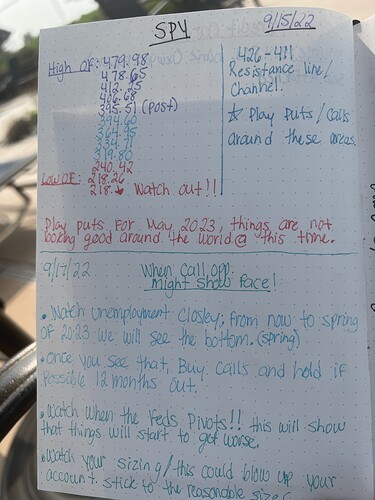 SPY
9/15/22
High of: 479.98
478.65
412.25
406.68
395.51 (post)
394.60
364.95
334.71
319.80
240.42
Low of: 218.26
218.↓ Watch out!!
426-411
Resistance line/
Channel.
☆ Play puts/calls
around these areas.
Play puts for May 2023, things are not
looking good around the world @ this time.
9/17/22
When call opp.
might show face!
• Watch unemployment closley; from now to spring
of 2023 we will see the bottom. (spring)
• once you see that, Buy calls and hold if
possible 12 months out.
• Watch when the feds Pivots!! this will show
that things will start to get worse.
• Watch your sizing/this could blow up your
account. stick to the reasonable sizes